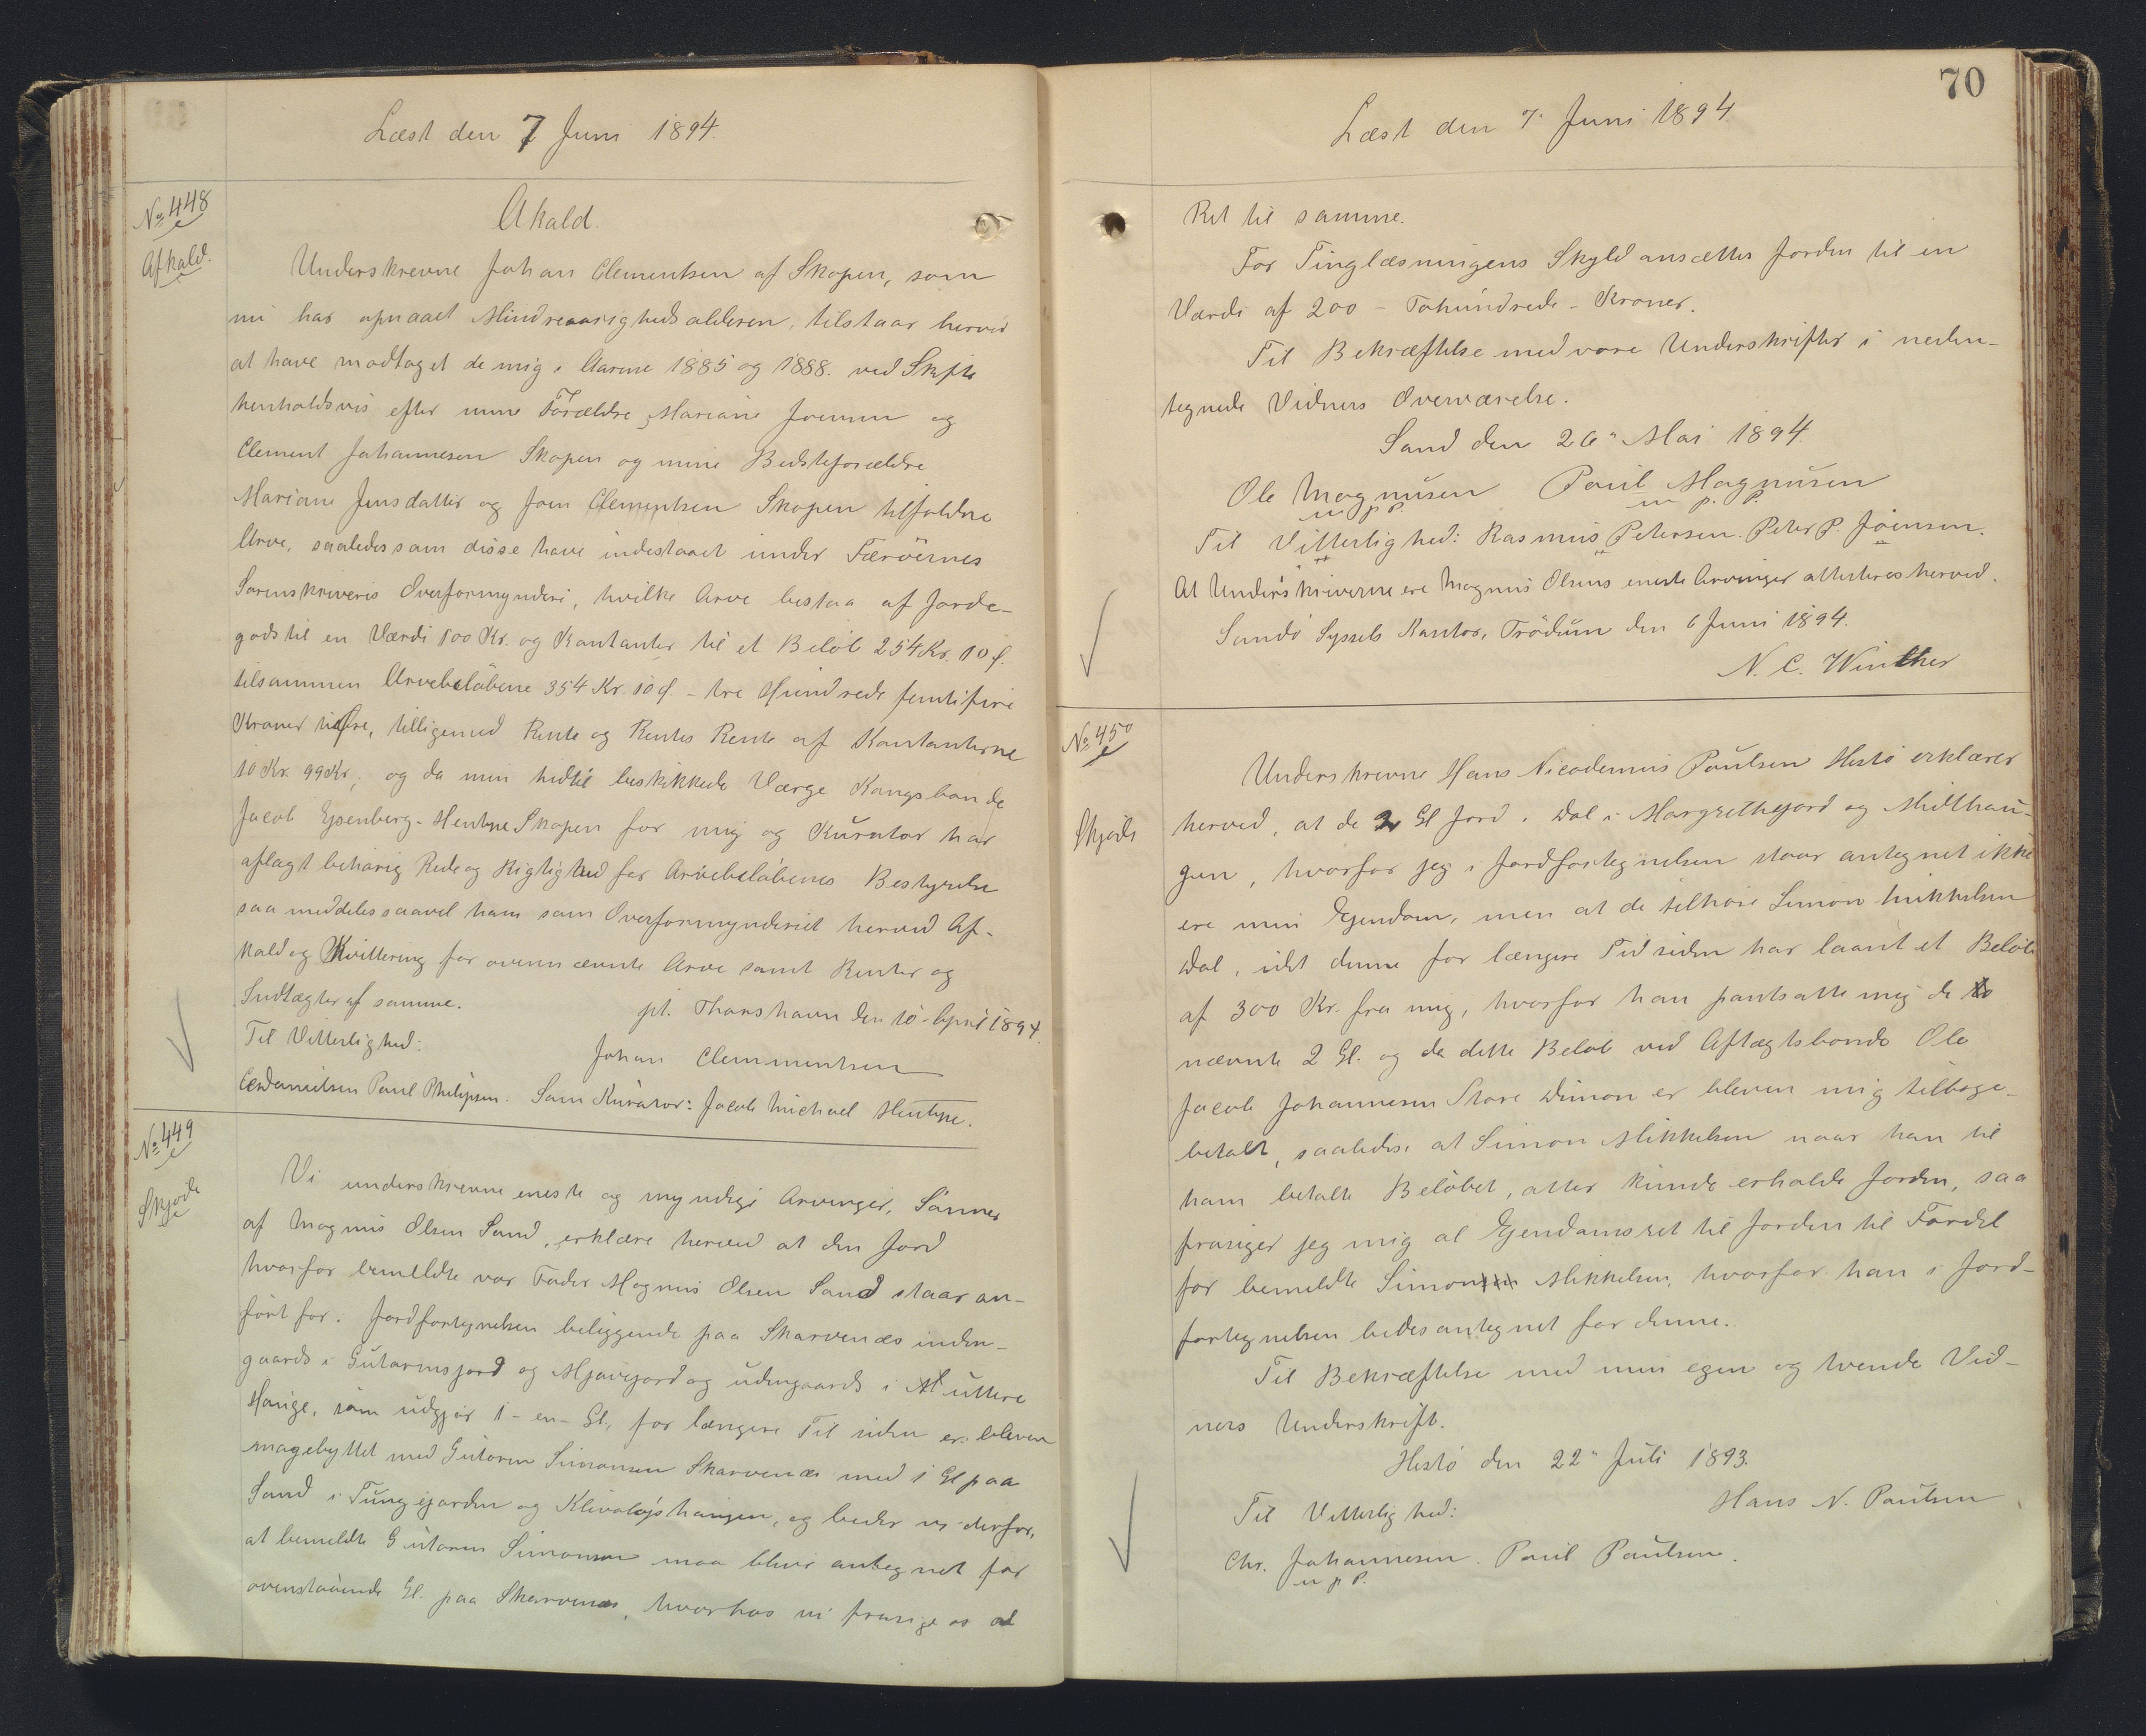 Læst den 7 Juni 1894.
No 448
Afkald.
Akald.
Underskrevne Johan Clementsen af Skopen, som
nu har opnaaet Mindreaarighedsalderen, tilstaar herved
at have modtaget de mig i Aarene 1885 og 1888. ved Skifte
henholdsvis efter mine Forældre, Mariane Joensen og
Clement Johannesen Skopen og mine Bedsteforældre
Mariane Jensdatter og Joen Clementsen Skopen tilfaldne
Arve, saaledes som disse have indestaaet under Færöernes
Sorenskriveris Overformynderi, hvilke Arve bestaa af Jorde-
gods til en Værdi 100 Kr. og Kontanter til et Beløb 254 Kr. 10 Ø.
tilsammen Arvebeløbene 354 Kr. 10 Ø - tre Hundrede femtifire
Kroner ti Øre, tilligemed Rente og Rentes Rente af Kontanterne
10 Kr. 99 Kr; og da min hidtil beskikkede Værge Kongsbonde
Jacob Eysenberg-Hentze Skopen for mig og Kurator har
aflagt behørig Rede og Rigtighed for Arvebeløbenes Bestyrelse
saa meddeles saavel ham som Overformynderiet herved Af-
kald og Kvittering for ovennævnte Arve samt Renter og
Indtægter af samme.
pt. Thorshavn den 10 April 1894.
Til Vitterlighed:
Johan Clemmentsen
Danielsen Paul Philipsen. Som Kurator: Jacob Michael Hentze.
No 449
Skjøde
Vi underskrevne eneste og myndige Arvinger, Sønner
af Magnus Olsen Sand, erklære herved at den Jord
hvorfor bemeldte vor Fader Magnus Olsen Sand staar an-
ført for i Jordfortegnelsen beliggende paa Skarvenæs inden-
gaards i Gutormsjord og Mjavejord og udengaards i Uttere
Hauge, som udgjør 1 - en - Gl., for længere Tid siden er bleven
magebyttet med Gutorm Simonsen Skarvenæs med 1 Gl paa
Sand i Tungejorden og Klivaløjshaugen, og beder vi derfor,
at bemeldte Gutorm Simonsen maa blive antegnet for
ovenstaaende Gl. paa Skarvenæs, hvorhos vi frasige os al
70
Læst den 7. Juni 1894.
Ret til samme.
For Tinglæsningens Skyld ansættes Jorden til en
Værdi af 200 - Tohundrede - Kroner.
Til Bekræftelse med vore Underskrifter i neden-
tegnede Vidners Overværelse.
Sand den 26" Mai 1894.
Ole Magnusen Poul Magnusen
m p P. m p. P.
Til Vitterlighed: Rasmus Petersen. Peter P. Joensen.
At Underskriverne ere Magnus Olsens eneste Arvinger attesteres herved.
Sandø Syssels Kontor, Trödum den 6 Juni 1894.
N. C. Winther
No 450
Skjøde
Underskrevne Hans Nicodemus Poulsen Hestø erklærer
herved, at de 2 Gl Jord i Dal i Margrethejord og Midthau-
gen, hvorfor jeg i Jordfortegnelsen staar antegnet ikke
ere min Ejendom, men at de tilhøre Simon Mikkelsen
Dal, idet denne for længere Tid siden har laant et Beløb
af 300 Kr. fra mig, hvorfor han pantsatte mig de to
nævnte 2 Gl. og da dette Beløb ved Aftægtsbonde Ole
Jacob Johannesen Store Dimon er bleven mig tilbage-
betalt, saaledes at Simon Mikkelsen naar han til
ham betalte Beløbet, atter kunde erholde Jorden, saa
frasiger jeg mig al Ejendomsret til Jorden til Fordel
for bemeldte Simon Mikkelsen, hvorfor han i Jord-
fortegnelsen bedes antegnet for denne.
Til Bekræftelse med min egen og tvende Vid-
ners Underskrift.
Hestø den 22" Juli 1893.
Hans N. Poulsen
Til Vitterlighed:
Chr. Johannesen. Poul Poulsen.
m p P.